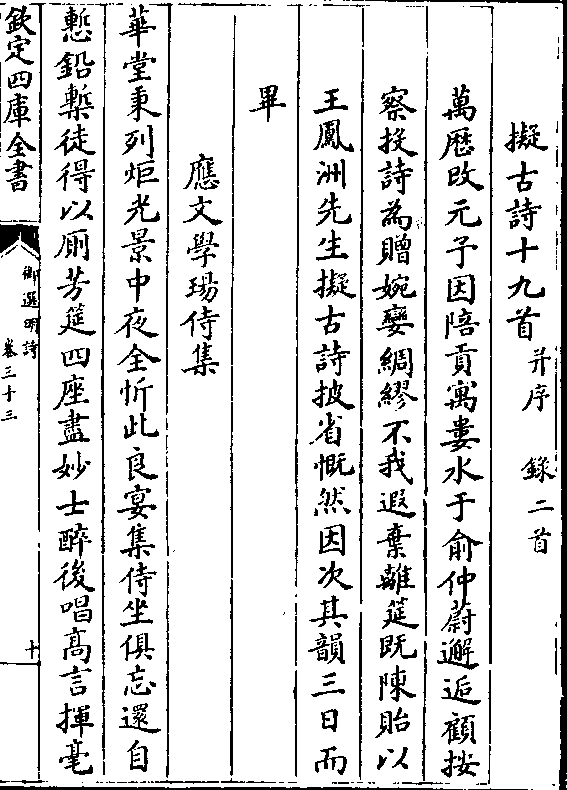 擬古詩十九首 并序 錄二首
萬厯改元予因陪貢寓婁水于俞仲蔚邂逅顧按
察投詩為贈婉孌綢繆不我遐棄離筵既陳貽以
王鳳洲先生擬古詩披省慨然因次其韻三日而
畢
應文學瑒侍集
華堂秉列炬光景中夜全忻此良宴集侍坐俱忘還自
慙鉛槧徒得以廁芳筵四座盡妙士醉後唱高言揮毫
欽定四庫全書
御選明詩
卷三十三
十